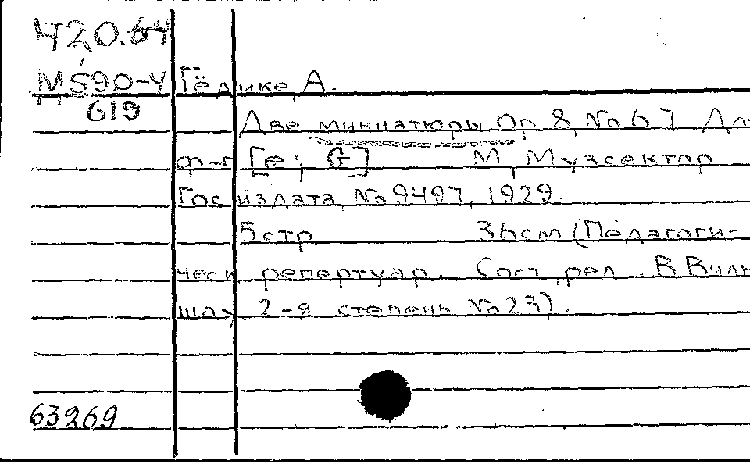 420.64
MS90-4 Гёдике, А.
619
Две миниатюры Ор 8, № 6 7 Дл
ф-п [e; G] М, Музсектор
Гос издата, № 9497, 1929.
5 стр 36 см (Педагоги-
ческ репертуар. Сост, ред. В Виль
шау 2-я степень № 23).
63269